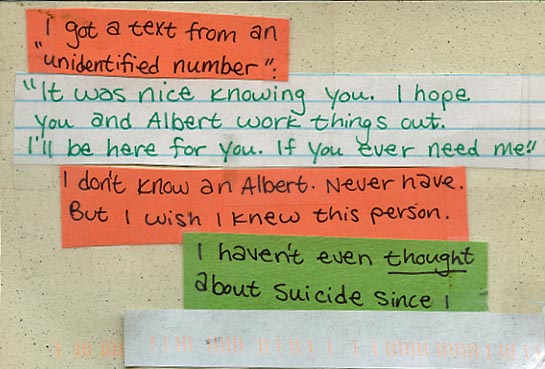 I got a text from an
"unidentified number":
"It was nice knowing you. I hope
you and Albert work things out.
I'll be here for you. If you ever need me"
I don't know an Albert. Never have.
But I wish I knew this person.
I haven't even thought
about suicide since I